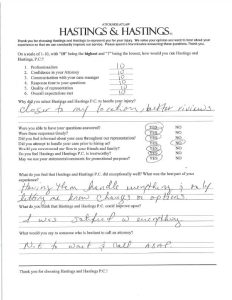 ATTORNEYS AT LAW
HASTINGS & HASTINGS
Thank you for choosing Hastings and Hastings to represent you for your injury. We value your opinion and want to hear about your
experience so that we can constantly improve our service. Please spend a few minutes answering these questions. Thank you.
On a scale of 1-10, with "10" being the highest and "1" being the lowest, how would you rank Hastings and
Hastings, P.C.?
1. Professionalism 10
2. Confidence in your Attorney 10
3. Communication with your case manager 10
4. Response from our team 10
5. Quality of representation 10
6. Overall expectations met 10
Why did you select Hastings and Hastings P.C. to handle your injury?
closer to my location, better reviews.
Were you able to have your questions answered? YES NO
Were these responses timely? YES NO
Did you feel informed about your case throughout our representation? YES NO
Did you attempt to handle your case prior to hiring us? YES NO
Would you recommend our firm to your friends and family? YES NO
Do you feel Hastings and Hastings P.C. is trustworthy? YES NO
May we use your anonymous comments for promotional purposes? YES NO
What do you feel that Hastings and Hastings P.C. did exceptionally well? What was the best part of your
experience?
Having them handle everything & only
letting me know changes or options.
What do you think Hastings and Hastings P.C. could improve upon?
I was satisfied w everything
What would you say to someone who is hesitant to call an attorney?
Not to wait & call ASAP
Thank you for choosing Hastings and Hastings P.C.!